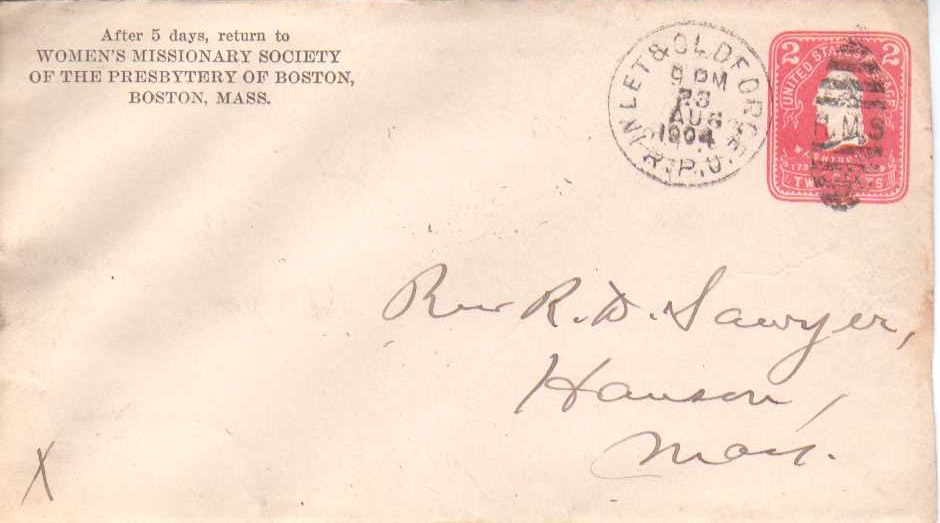 After 5 days, return to
WOMEN'S MISSIONARY SOCIETY
OF THE PRESBYTERY OF BOSTON,
BOSTON, MASS.
INLET & OLD FORGE
9 PM
23
AUG
1904
R.P.O.
2 2
UNITED STATES POSTAGE
R.M.S
WASHINGTON
TWO CENTS
Rev R. D. Sawyer,
Hanson,
Mass.
X